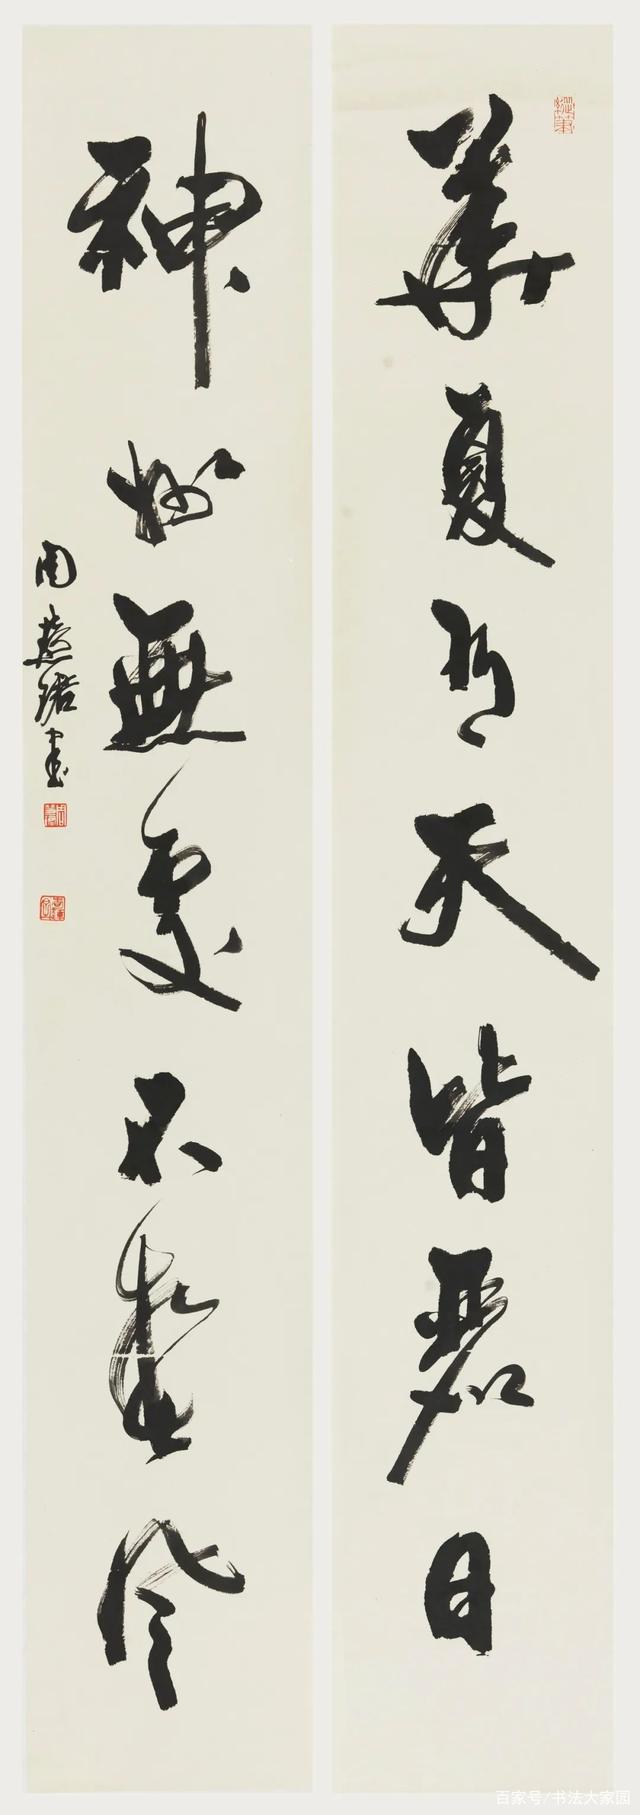 華夏有天皆麗日
神州無處不春風
周慧珺書
百家号/书法大家园